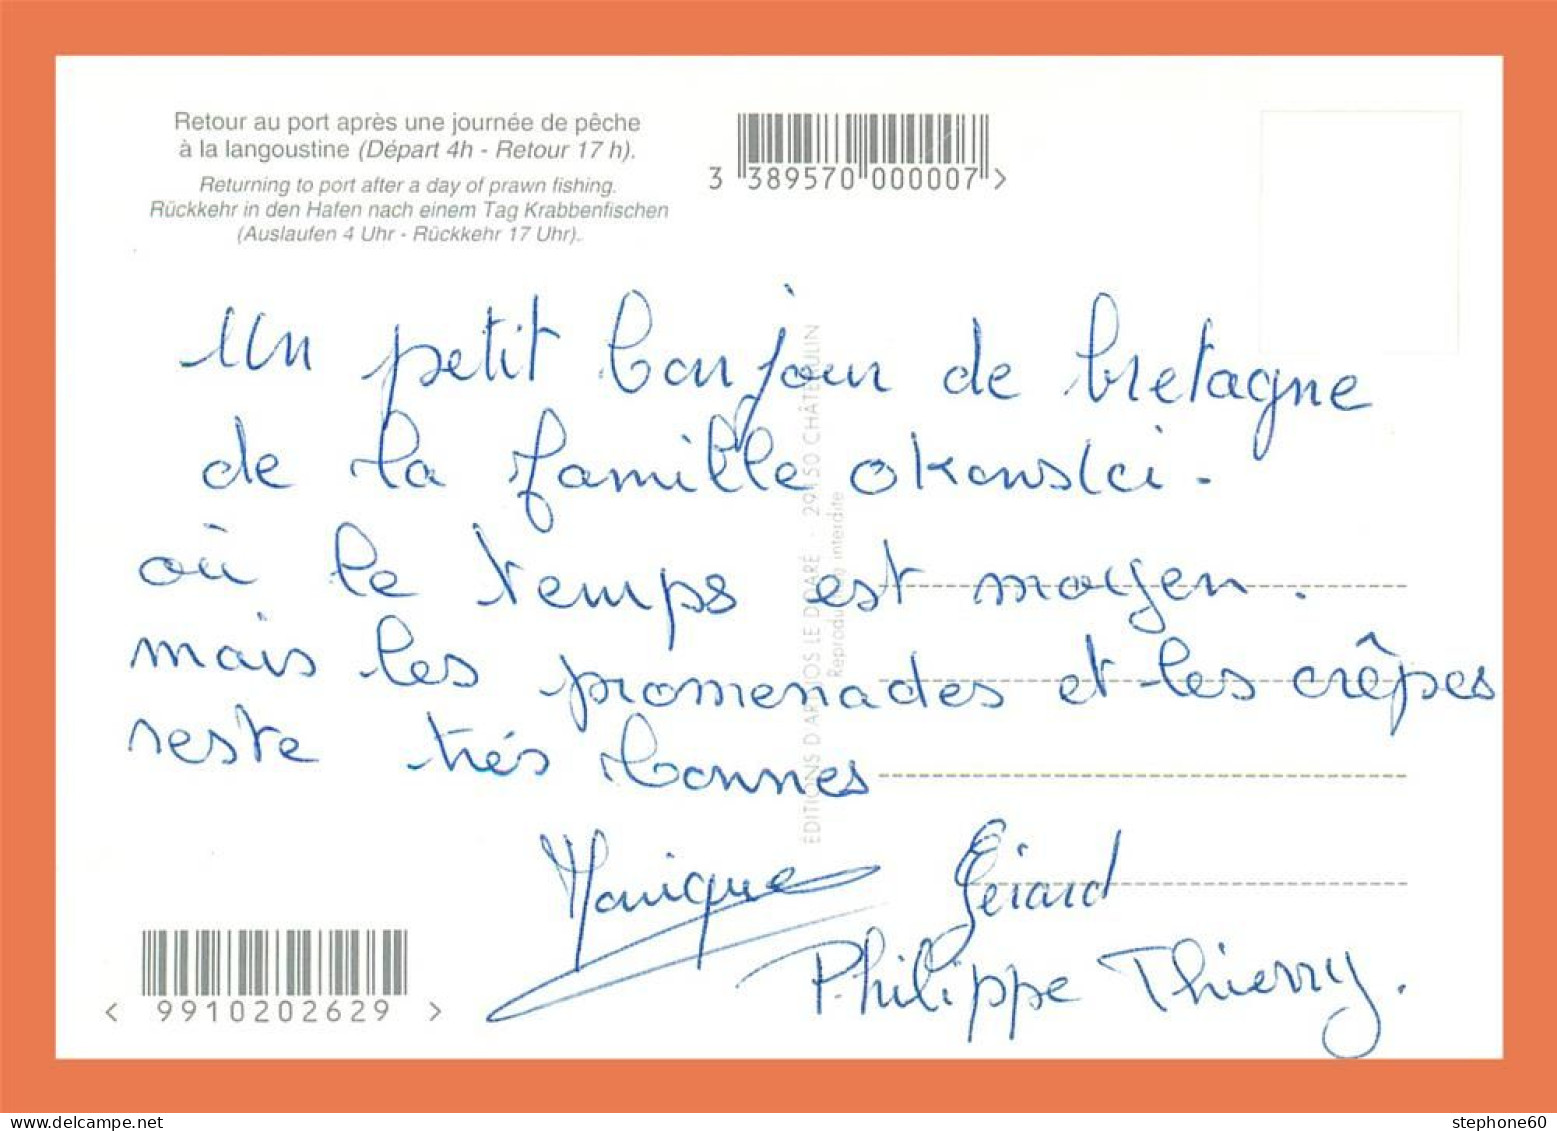 Retour au port après une journée de pêche
à la langoustine (Départ 4h - Retour 17 h).
Returning to port after a day of prawn fishing.
Rückkehr in den Hafen nach einem Tag Krabbenfischen
(Auslaufen 4 Uhr - Rückkehr 17 Uhr).
3 389570 000007 >
Un petit bonjour de bretagne
de la famille okonski.
où le temps est moyen.
mais les promenades et les crêpes
reste très bonnes
Monique Gérard
Philippe Thierry.
ÉDITIONS D'ART JOS LE DOARÉ - 29150 CHÂTEAULIN
Reproduction interdite
< 99102026 29 >
delcampe.net
stephone60